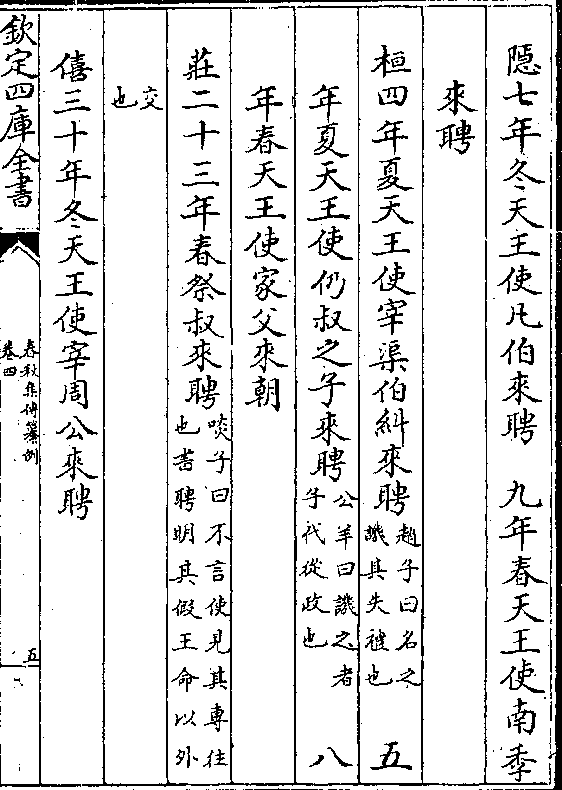 隱七年冬天王使凡伯來聘　九年春天王使南季
來聘
桓四年夏天王使宰渠伯糾來聘趙子曰名之譏其失禮也　五
年夏天王使仍叔之子來聘公羊曰譏之者子代從政也　八
年春天王使家父來朝
莊二十三年春祭叔來聘啖子曰不言使見其專往也書聘明其假王命以外
交也
僖三十年冬天王使宰周公來聘
欽定四庫全書
春秋集傳纂例
卷四
五